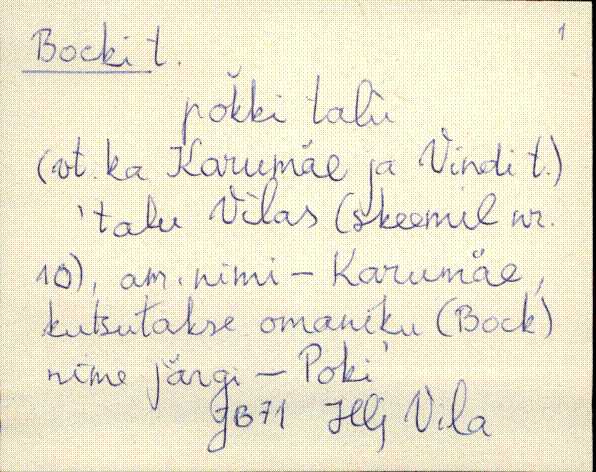 1
Bocki t.
pŏkki talu
(vt. ka Karumäe ja Vindi t.)
'talu Vilas (skeemil nr.
10), am. nimi – Karumäe,
kutsutakse omaniku (Bock)
nime järgi – Poki'
JB71 Hlj Vila